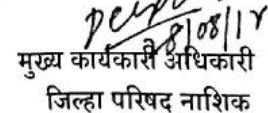 8/08/18
मुख्य कार्यकारी अधिकारी
जिल्हा परिषद नाशिक